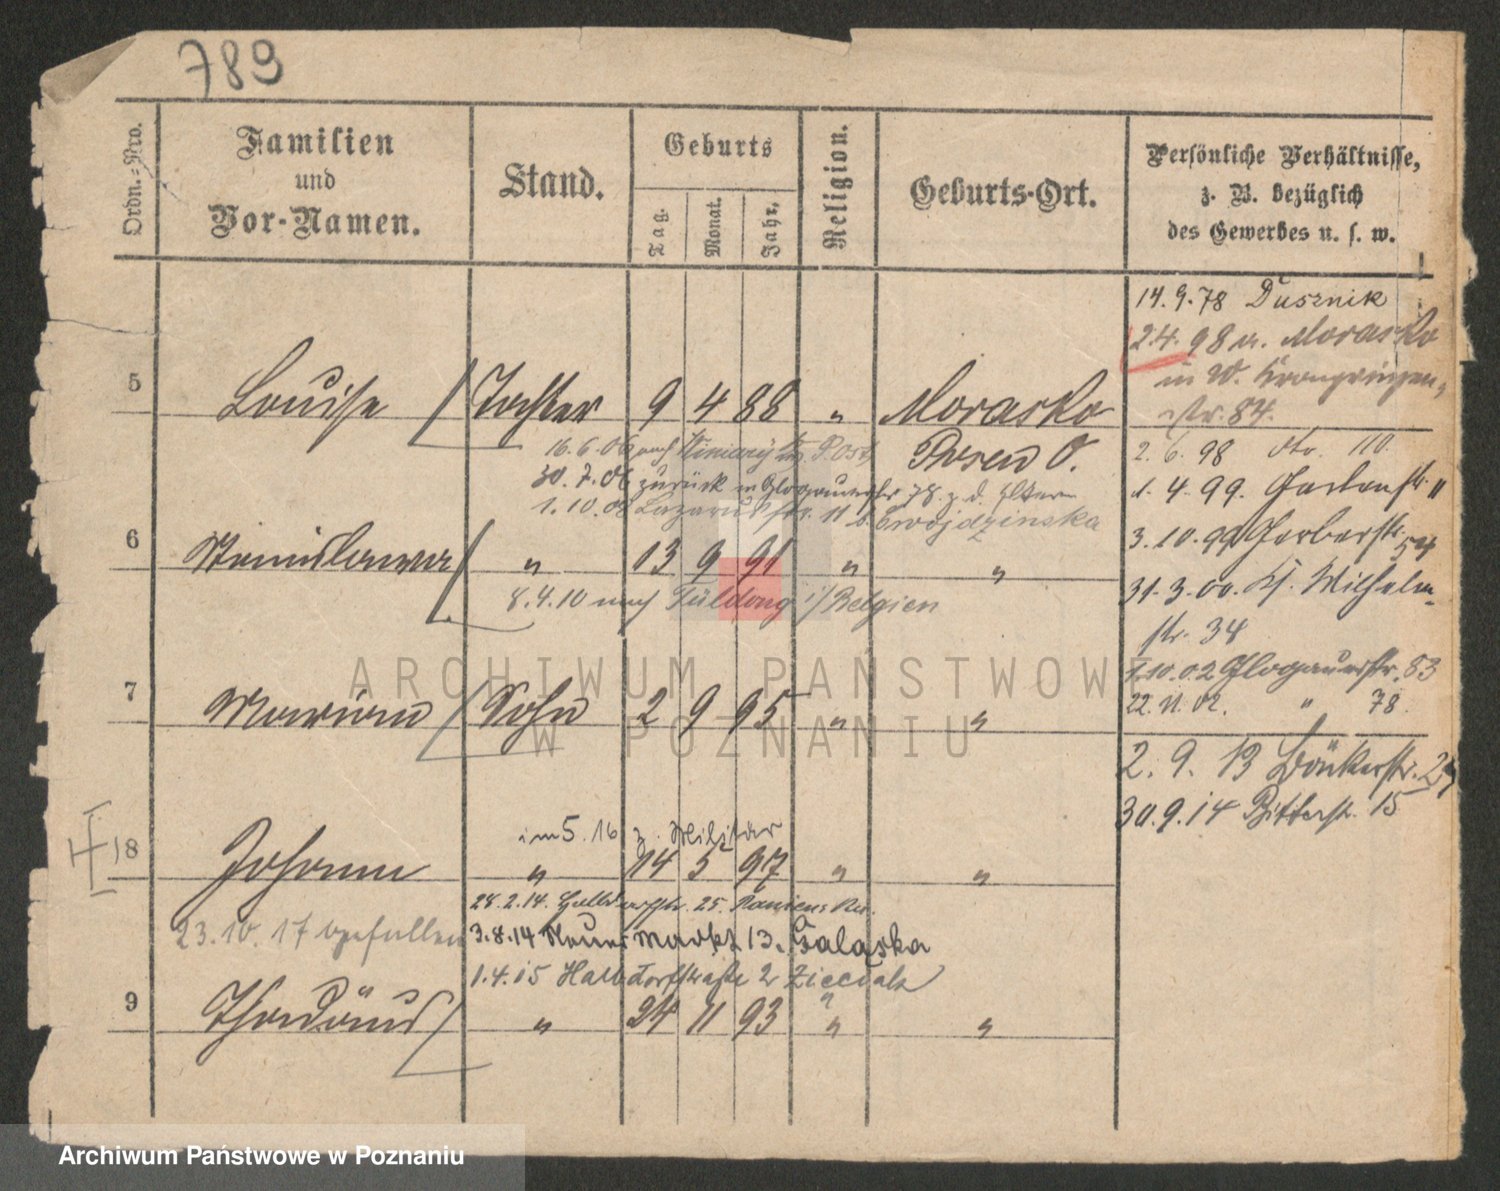 789
Ordn.-Nro.
Familien und Vor-Namen.
Stand.
Geburts
Tag.
Monat.
Jahr.
Religion.
Geburts-Ort.
Persönliche Verhältnisse,
z. B. bezüglich
des Gewerbes u. s. w.
14.9.78 Dusznik
24. 98 v. Morasko
in W. Kronprinzen-
str. 84.
5 Louise Tochter 9 4 88 " Morasko
Posen O.
16.6.06 nach
30.7.06 zurück in Glogauerstr 78 z. d. Eltern
1.10.08 Lazarusstr. 11 b. Cwojdzinska
2.6.98 dto. 110.
1.4.99. Gartenstr. 11
3.10.99 Gerberstr. 54
31.3.00. Kl. Wilhelm-
str. 34
1.10.02 Glogauerstr. 83
22.11.02. " 78.
6 Stanislawa " 13 9 91 " "
8.4.10 nach i/Belgien
7 Marian Sohn 2 9 95 " "
2.9.13 Bäckerstr.
30.9.14 Ritterstr. 15
im 5.16 z. Militär
8 Johann " 14 5 97 " "
28.2.14. Halbdorfstr. 25.
23.10.17 gefallen
3.8.14 Neuer Markt 13. Galaska
1.4.15 Halbdorfstraße 2
9 Thadäus " 24 11 93 " "
ARCHIWUM PAŃSTWOWE
W POZNANIU
Archiwum Państwowe w Poznaniu